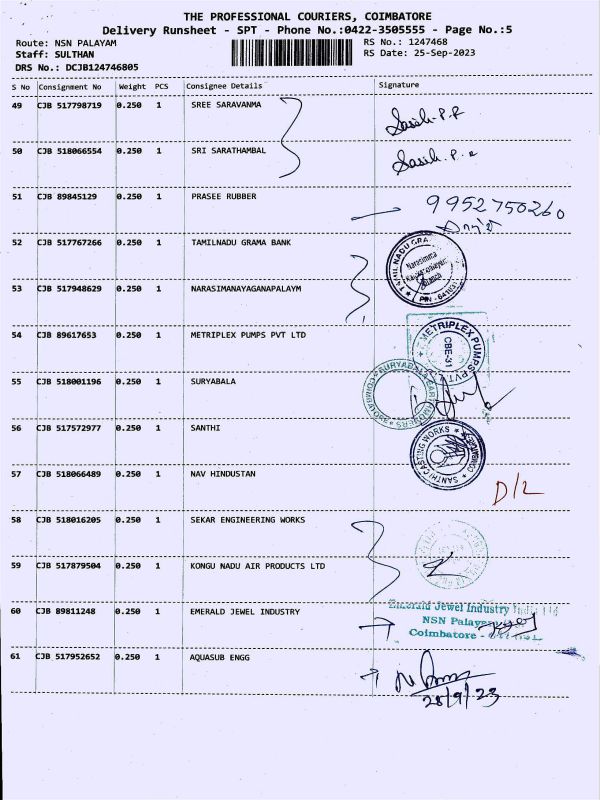 THE PROFESSIONAL COURIERS, COIMBATORE
Delivery Runsheet - SPT - Phone No.:0422-3505555 - Page No.:5
Route: NSN PALAYAM
RS No.: 1247468
Staff: SULTHAN
RS Date: 25-Sep-2023
DRS No.: DCJB124746805
S No Consignment No Weight PCS Consignee Details Signature
49 CJB 517798719 0.250 1 SREE SARAVANMA
Sasik.P.R
50 CJB 518066554 0.250 1 SRI SARATHAMBAL
Sasik.P.R
51 CJB 89845129 0.250 1 PRASEE RUBBER
9952750260
52 CJB 517767266 0.250 1 TAMILNADU GRAMA BANK
TAMIL NADU GRA
Narasima
Branch
PIN - 641031
53 CJB 517948629 0.250 1 NARASIMANAYAGANAPALAYM
54 CJB 89617653 0.250 1 METRIPLEX PUMPS PVT LTD
METRIPLEX PUMPS PVT
CBE-31
55 CJB 518001196 0.250 1 SURYABALA
SURYABALA
COIMBATORE
56 CJB 517572977 0.250 1 SANTHI
SANTHI CASTING WORKS
57 CJB 518066489 0.250 1 NAV HINDUSTAN
D/L
58 CJB 518016205 0.250 1 SEKAR ENGINEERING WORKS
59 CJB 517879504 0.250 1 KONGU NADU AIR PRODUCTS LTD
60 CJB 89811248 0.250 1 EMERALD JEWEL INDUSTRY
Emerald Jewel Industry
NSN Palayam
Coimbatore -
61 CJB 517952652 0.250 1 AQUASUB ENGG
28/9/23